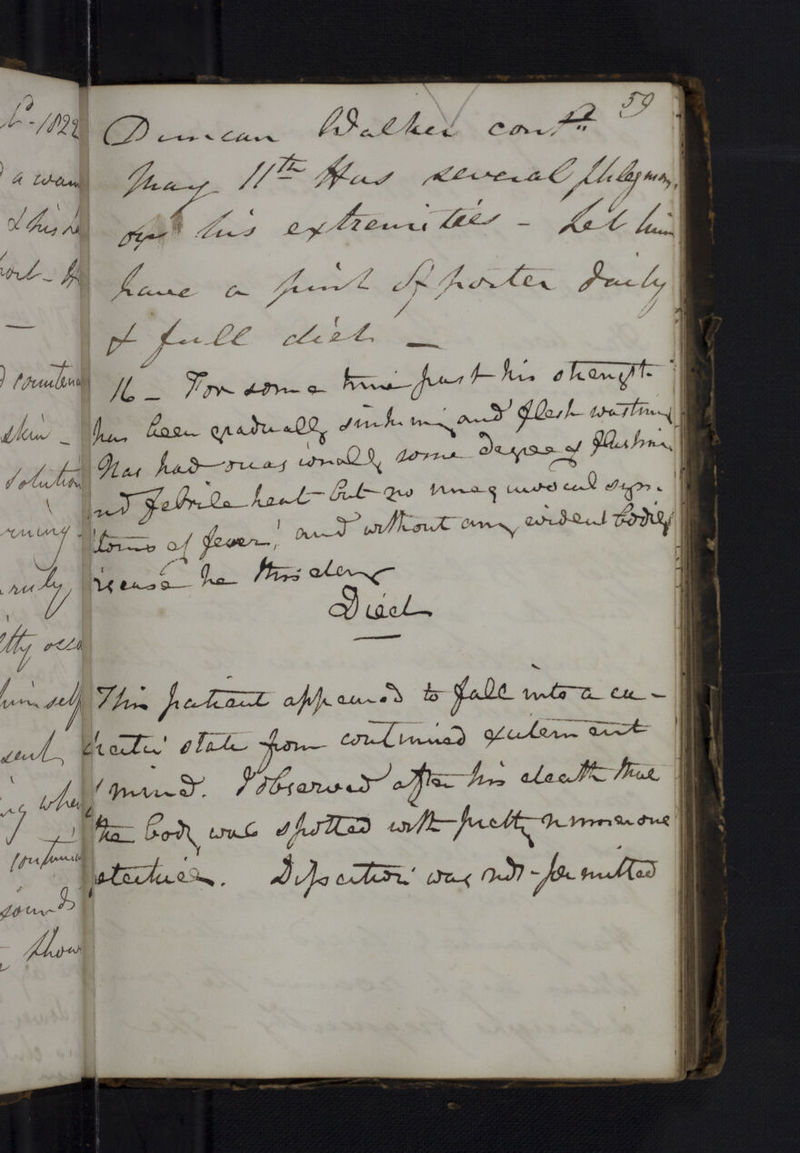 59
Duncan Walker contd
May 11th Has several phlegmons
on his extremities - Let him
have a pint of porter daily
& full diet —
16 - For some time past his strength
has been gradually sinking and flesh wasting
Has had occasionally some degree of flushing
and febrile heat but no unequivocal symp-
toms of fever, and without any evident bodily
disease he this day
Died
This patient appeared to fall into a ca-
chectic state from continued excitement
of mind. I observed after his death that
the body was spotted with pretty numerous
petechiae. Dissection was not permitted
1822
a wan
& his
counten
skin -
solution
truly
himself
sent
when
continu
sounds
show